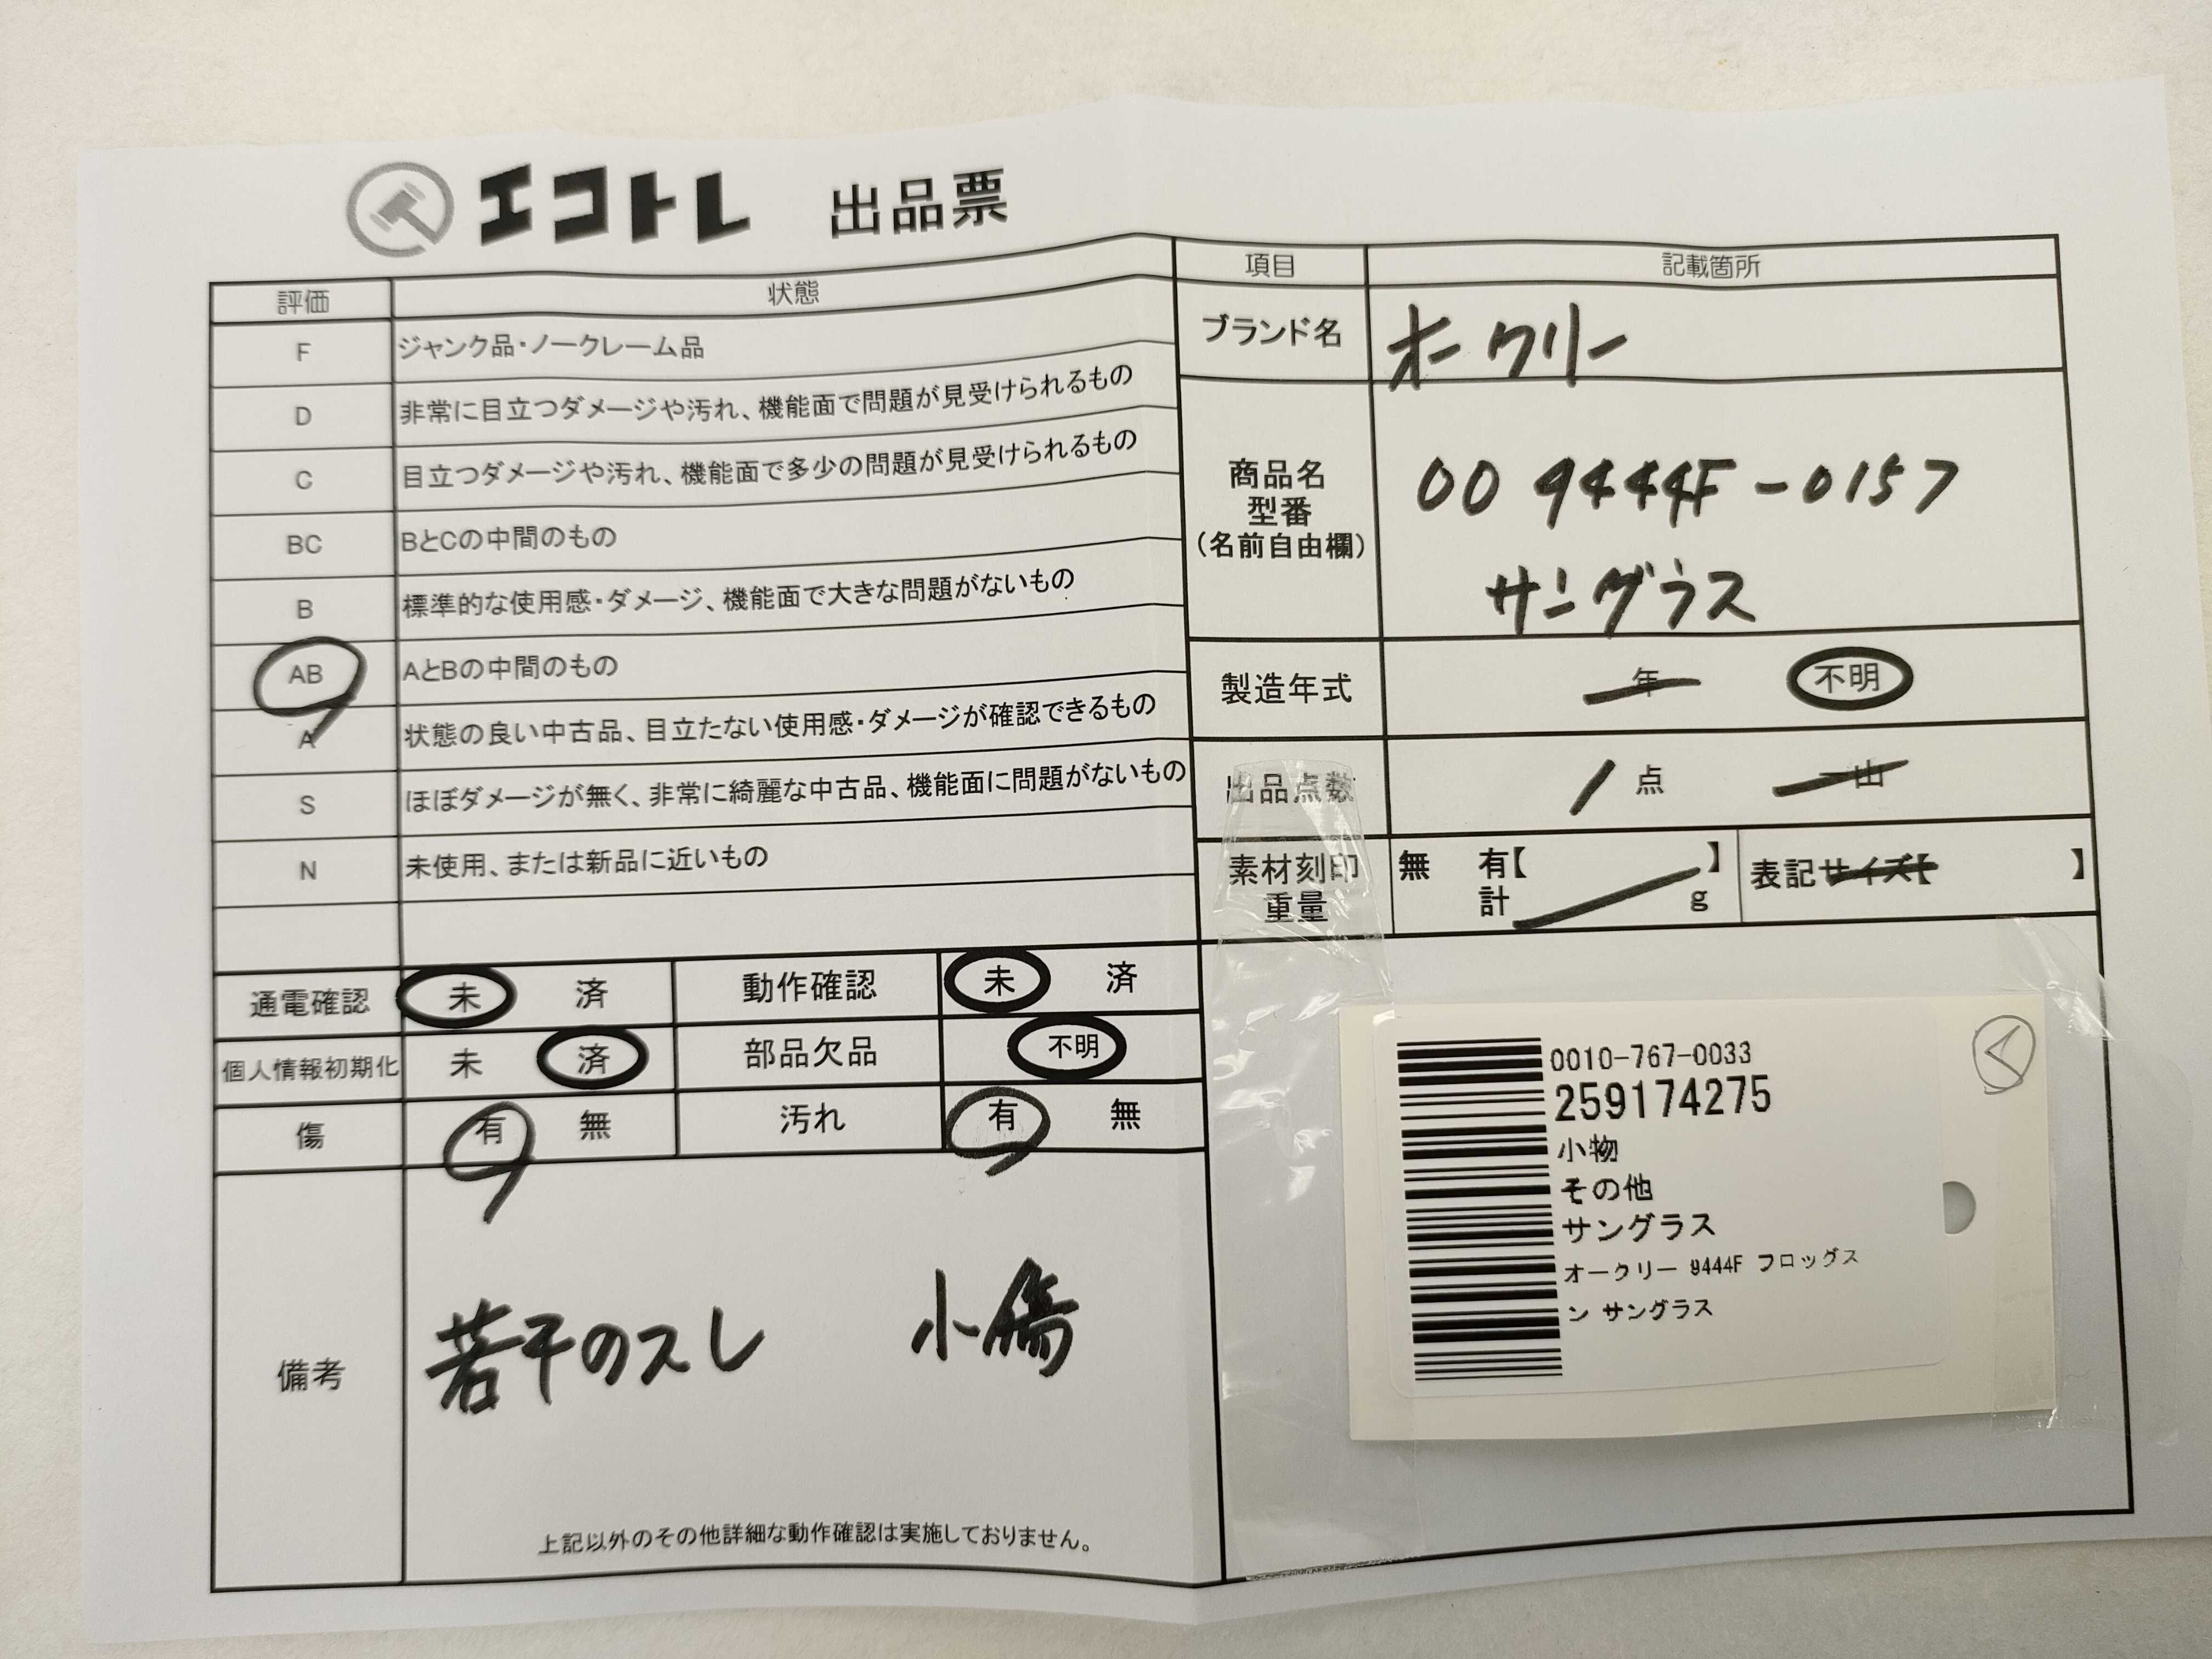 エコトレ 出品票
評価 状態
F ジャンク品・ノークレーム品
D 非常に目立つダメージや汚れ、機能面で問題が見受けられるもの
C 目立つダメージや汚れ、機能面で多少の問題が見受けられるもの
BC BとCの中間のもの
B 標準的な使用感・ダメージ、機能面で大きな問題がないもの
AB AとBの中間のもの
A 状態の良い中古品、目立たない使用感・ダメージが確認できるもの
S ほぼダメージが無く、非常に綺麗な中古品、機能面に問題がないもの
N 未使用、または新品に近いもの
通電確認 未 済 動作確認 未 済
個人情報初期化 未 済 部品欠品 不明
傷 有 無 汚れ 有 無
備考 若干のスレ 小傷
上記以外のその他詳細な動作確認は実施しておりません。
項目 記載箇所
ブランド名 オークリー
商品名
型番
(名前自由欄)
OO 9444F-0157
サングラス
製造年式 年 不明
出品点数 1 点 一山
素材刻印 無 有【 】 表記サイズ【 】
重量 計 g
0010-767-0033
259174275
小物
その他
サングラス
オークリー 9444F フロッグス
ン サングラス